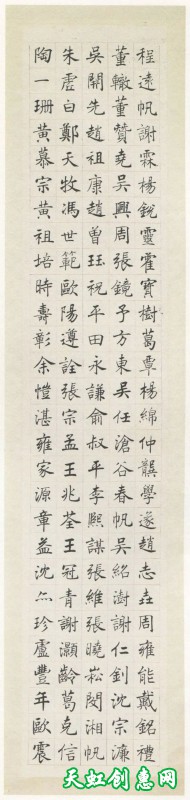 程遠帆謝霖楊銳靈霍寶樹葛覃楊綿仲騏學遂趙志垚周雍能戴銘禮
董轍董贊堯吳興周張鏡予方東吳任滄谷春帆吳紹澍謝仁釗沈宗濂
吳開先趙祖康趙曾珏祝平田永謙俞叔平李熙謀張維張曉崧閔湘帆
朱虛白鄭天牧馮世範歐陽遵詮張宗孟王兆荃王冠青謝灝齡葛克信
陶一珊黃慕宗黃祖培時壽彰余愷湛雍家源章益沈尒珍盧豐年歐震
天虹创惠网